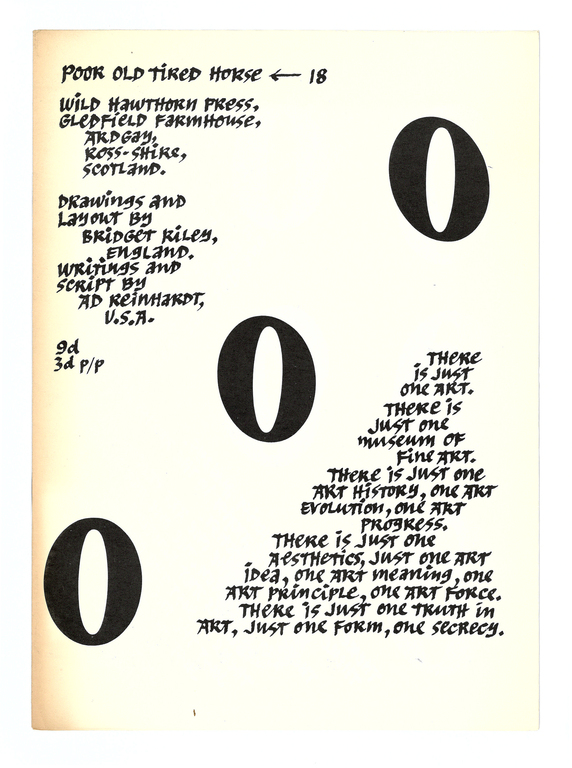 POOR OLD TIRED HORSE ← 18
WILD HAWTHORN PRESS,
GLEDFIELD FARMHOUSE,
ARDGAY,
ROSS-SHIRE,
SCOTLAND.
DRAWINGS AND
LAYOUT BY
BRIDGET RILEY,
ENGLAND.
WRITINGS AND
SCRIPT BY
AD REINHARDT,
U.S.A.
9d
3d P/P
O
O
O
THERE
IS JUST
ONE ART.
THERE IS
JUST ONE
MUSEUM OF
FINE ART.
THERE IS JUST ONE
ART HISTORY, ONE ART
EVOLUTION, ONE ART
PROGRESS.
THERE IS JUST ONE
AESTHETICS, JUST ONE ART
IDEA, ONE ART MEANING, ONE
ART PRINCIPLE, ONE ART FORCE.
THERE IS JUST ONE TRUTH IN
ART, JUST ONE FORM, ONE SECRECY.